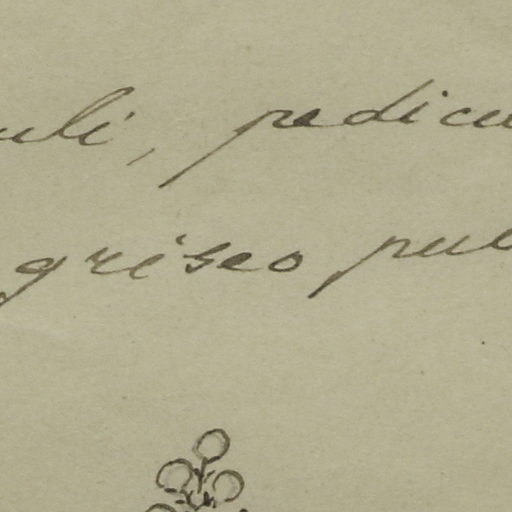 uli, pedicu
griseo pul